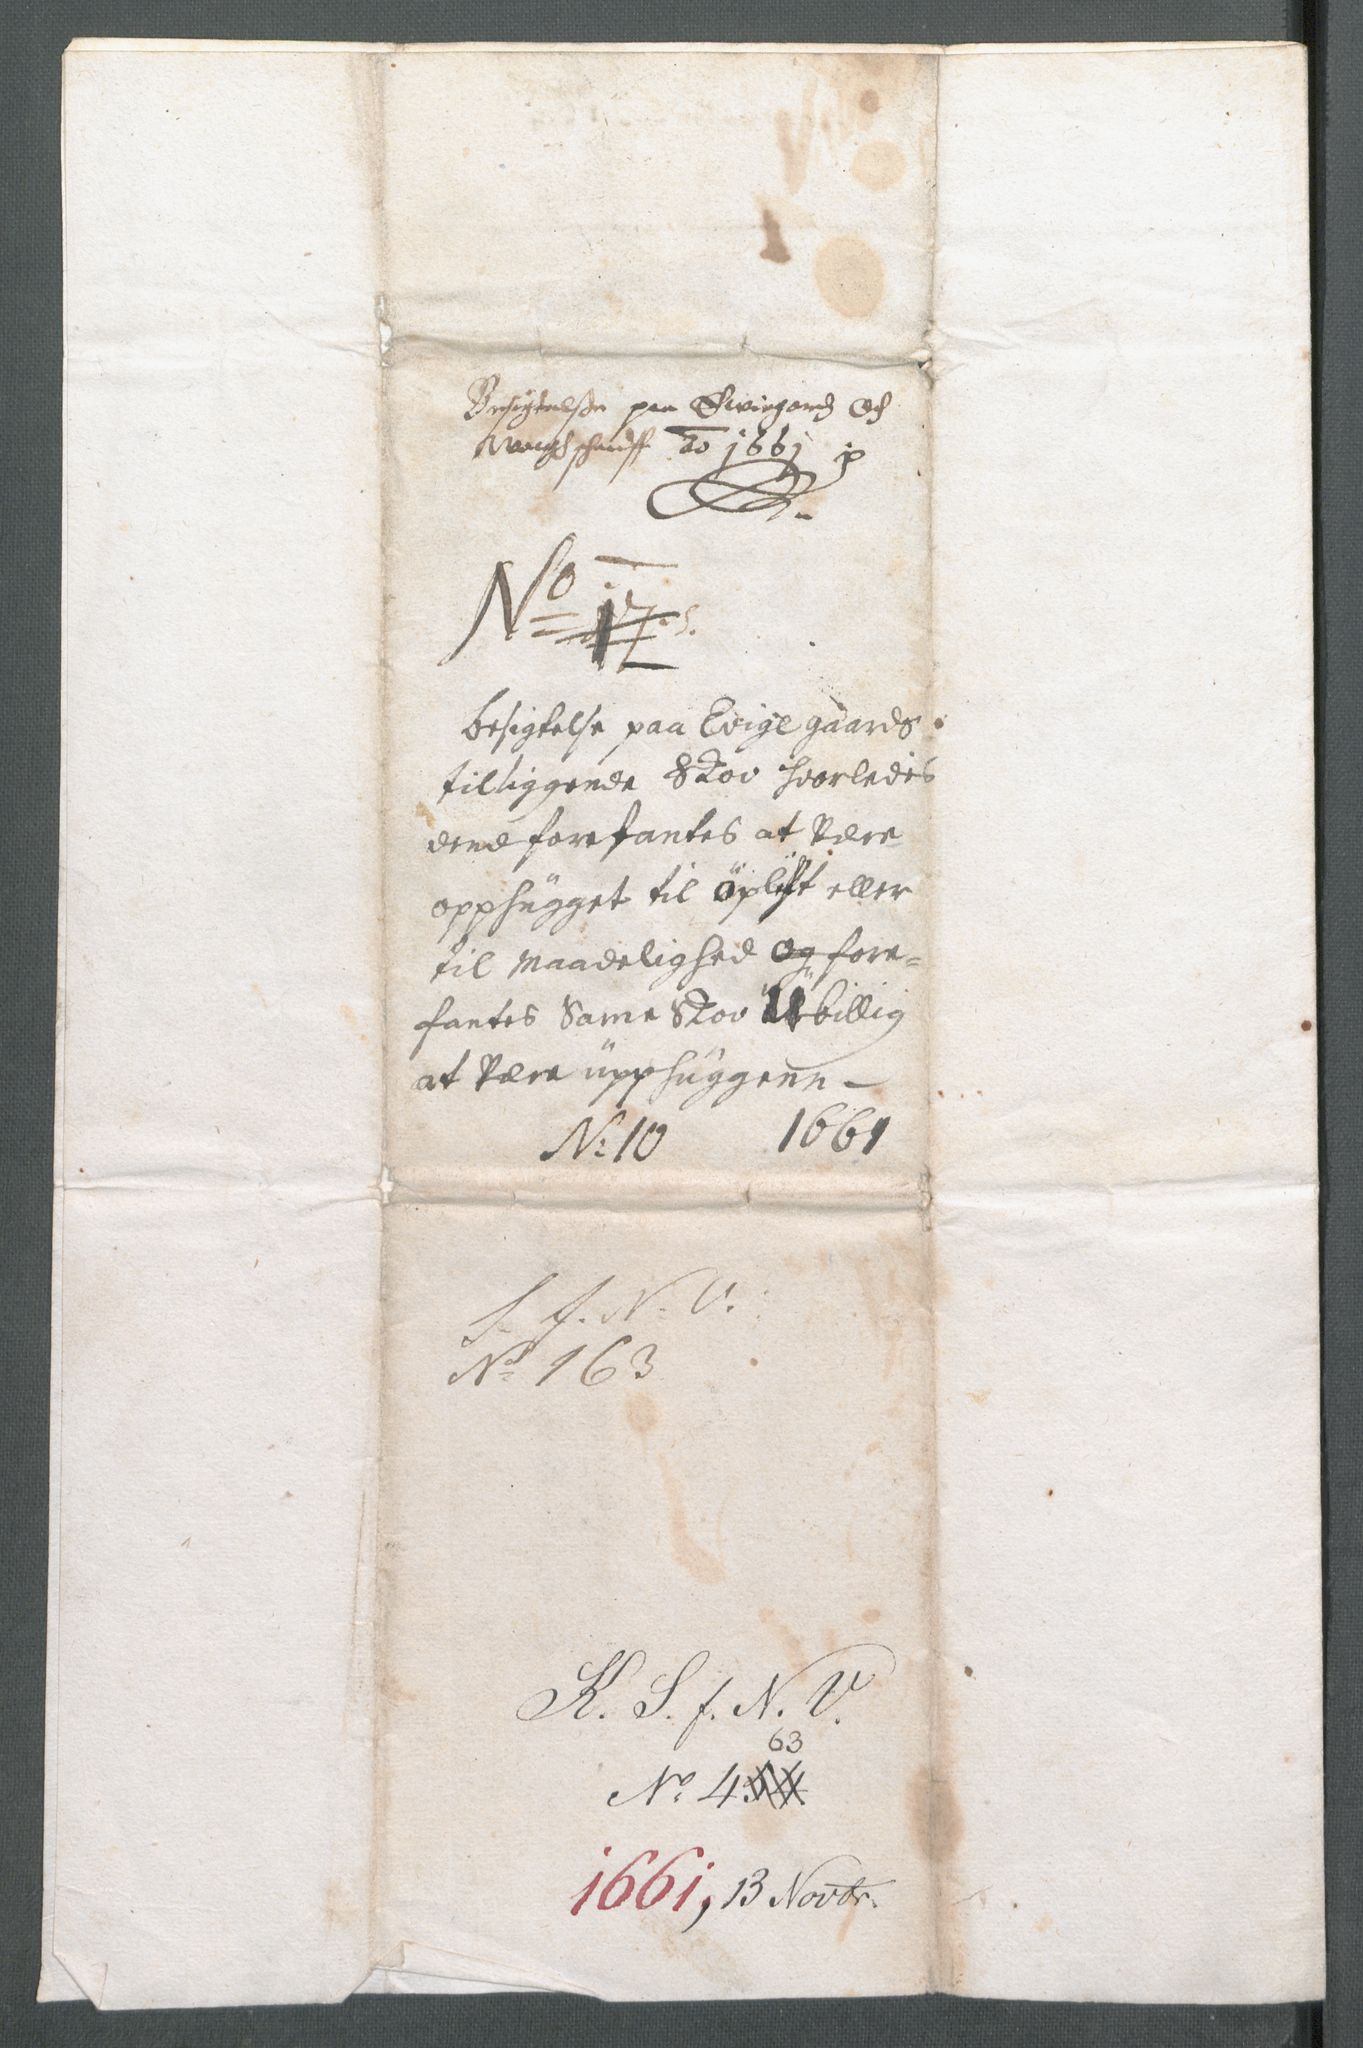 Besigtelsse paa Eviegaardz Och
Ao 1661
No 17.
besigtelse paa Evige gaards
tilliggende Skov hvorledes
dend forefantes at være
opphügget til öplist eller
til Maadelighed og fore-
fantes Same Skov Übillig
at være üpphüggenn -
N: 10 1661
S. f. N. V.
No 163
K. S. f. N. V.
63
No 4
1661, 13 Novbr.